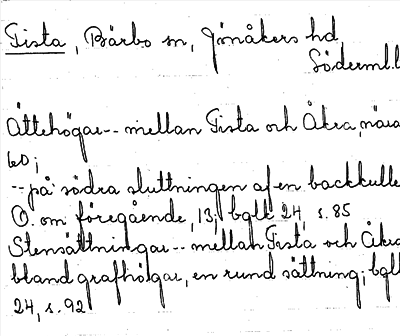 Tista, Bärbo sn, Jönåkers hd
Söderml.l
Ättehögar -- mellan Tista och Åkra, nära
60;
-- på södra sluttningen af en backkulle
O. om föregående, 13; bglt 24, s. 85
Stensättningar -- mellan Tista och Åkra
bland grafhölgar, en rund sättning; bglt
24, s. 92